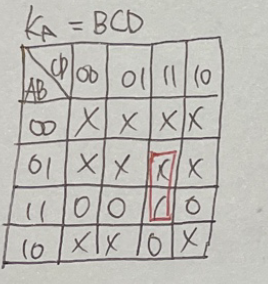 KA = BCD
CD 00 01 11 10
AB
00 X X X X
01 X X X X
11 0 0 1 0
10 X X 0 X